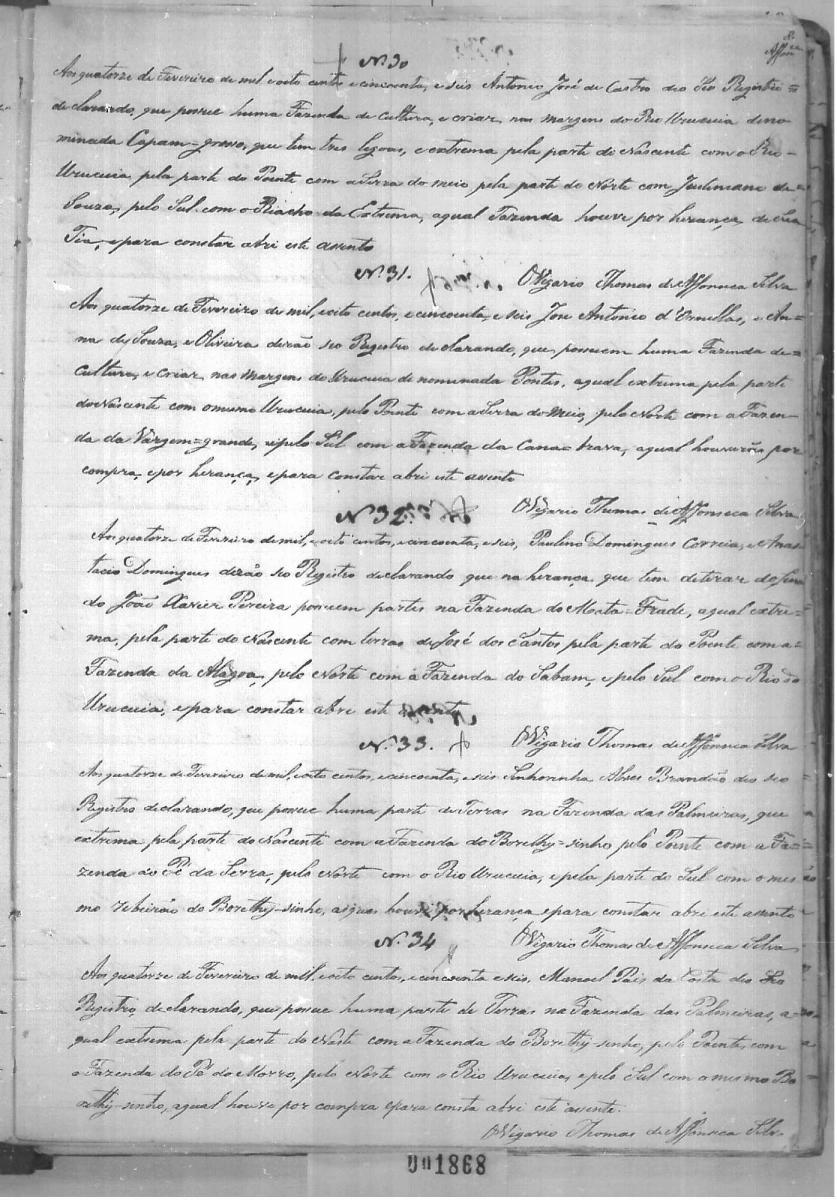 8
Affonca
N.º 30
Aos quatorze de Fevereiro de mil, e oito cento e cincoenta, e seis Antonio José de Castro deo seo Registro=
declarando, que possue huma Fazenda de cultura, e criar, nas margens do Rio Urucuia deno
minada Capam=grosso, que tem tres legoas, e extrema pela parte do Nascente com o Rio-
Urucuia, pela parte do Poente com a Serra do meio pela parte do Norte com Justiniano de=
Souza, pelo Sul com o Riacho da Extrema, aqual Fazenda houve por herança, de sua
Tia, e para constar abri este assento
O Vigario Thomas de Affonseca Silva
N.º 31.
Aos quatorze de Fevereiro de mil, e oito centos, e cincoenta, e seis José Antonio d'Ornellas, e An-
na de Souza, e Oliveira derão seo Registro declarando, que, possuem huma Fazenda de=
cultura, e criar, nas margens do Urucuia denominada Pontes, aqual extrema pela parte
do Nascente com o mesmo Urucuia, pelo Poente com a Serra do Meio, pelo Norte com a Fazen-
da da Vargem=grande, e pelo Sul com a Fazenda da Cana=brava, aqual houverão por
compra, e por herança, e para constar abri este assento
O Vigario Thomas de Affonseca Silva
N.º 32
Aos quatorze de Fevereiro de mil, e oito centos, e cincoenta, e seis, Paulino Domingues Correia, e Anas-
tacio Domingues derão seo Registro declarando que na herança, que tem de tirar do
do João Xavier Pereira possuem partes na Fazenda do Mata=Frade, aqual extre-
ma, pela parte do Nascente com terras de José dos Santos pela parte do Poente com a-
Fazenda da Alagoa, pelo Norte com a Fazenda do Sabam, e pelo Sul com o Rio do
Urucuia, e para constar abri este assento
O Vigario Thomas de Affonseca Silva
N.º 33.
Aos quatorze de Fevereiro de mil, e oito centos, e cincoenta, e seis Senhorinha Alves Brandão deo seo
Registro declarando, que possue huma parte de Terras na Fazenda das Palmeiras, que
extrema pela parte do Nascente com a Fazenda do Borethy=sinho pelo Poente com a Fa-
zenda do Pé da Serra, pelo Norte com o Rio Urucuia, e pela parte do Sul com o mes
mo ribeirão do Borethy-sinho, houve por herança, e para constar abri este assento
O Vigario Thomas de Affonseca Silva
N.º 34
Aos quatorze de Fevereiro de mil, e oito centos, e cincoenta e seis, Manoel Pais da Costa deo seo
Registro, declarando, que possue huma parte de Terras na Fazenda das Palmeiras, a-
qual extrema pela parte do Neste com a Fazenda do Borethy-sinho, pelo Poente, com
a Fazenda do Pé do Morro, pelo Norte com o Rio Urucuia, e pelo Sul com o mesmo Bo
rethy-sinho, aqual houve por compra e para consta abri este assento.
O Vigario Thomas de Affonseca Silva
001868